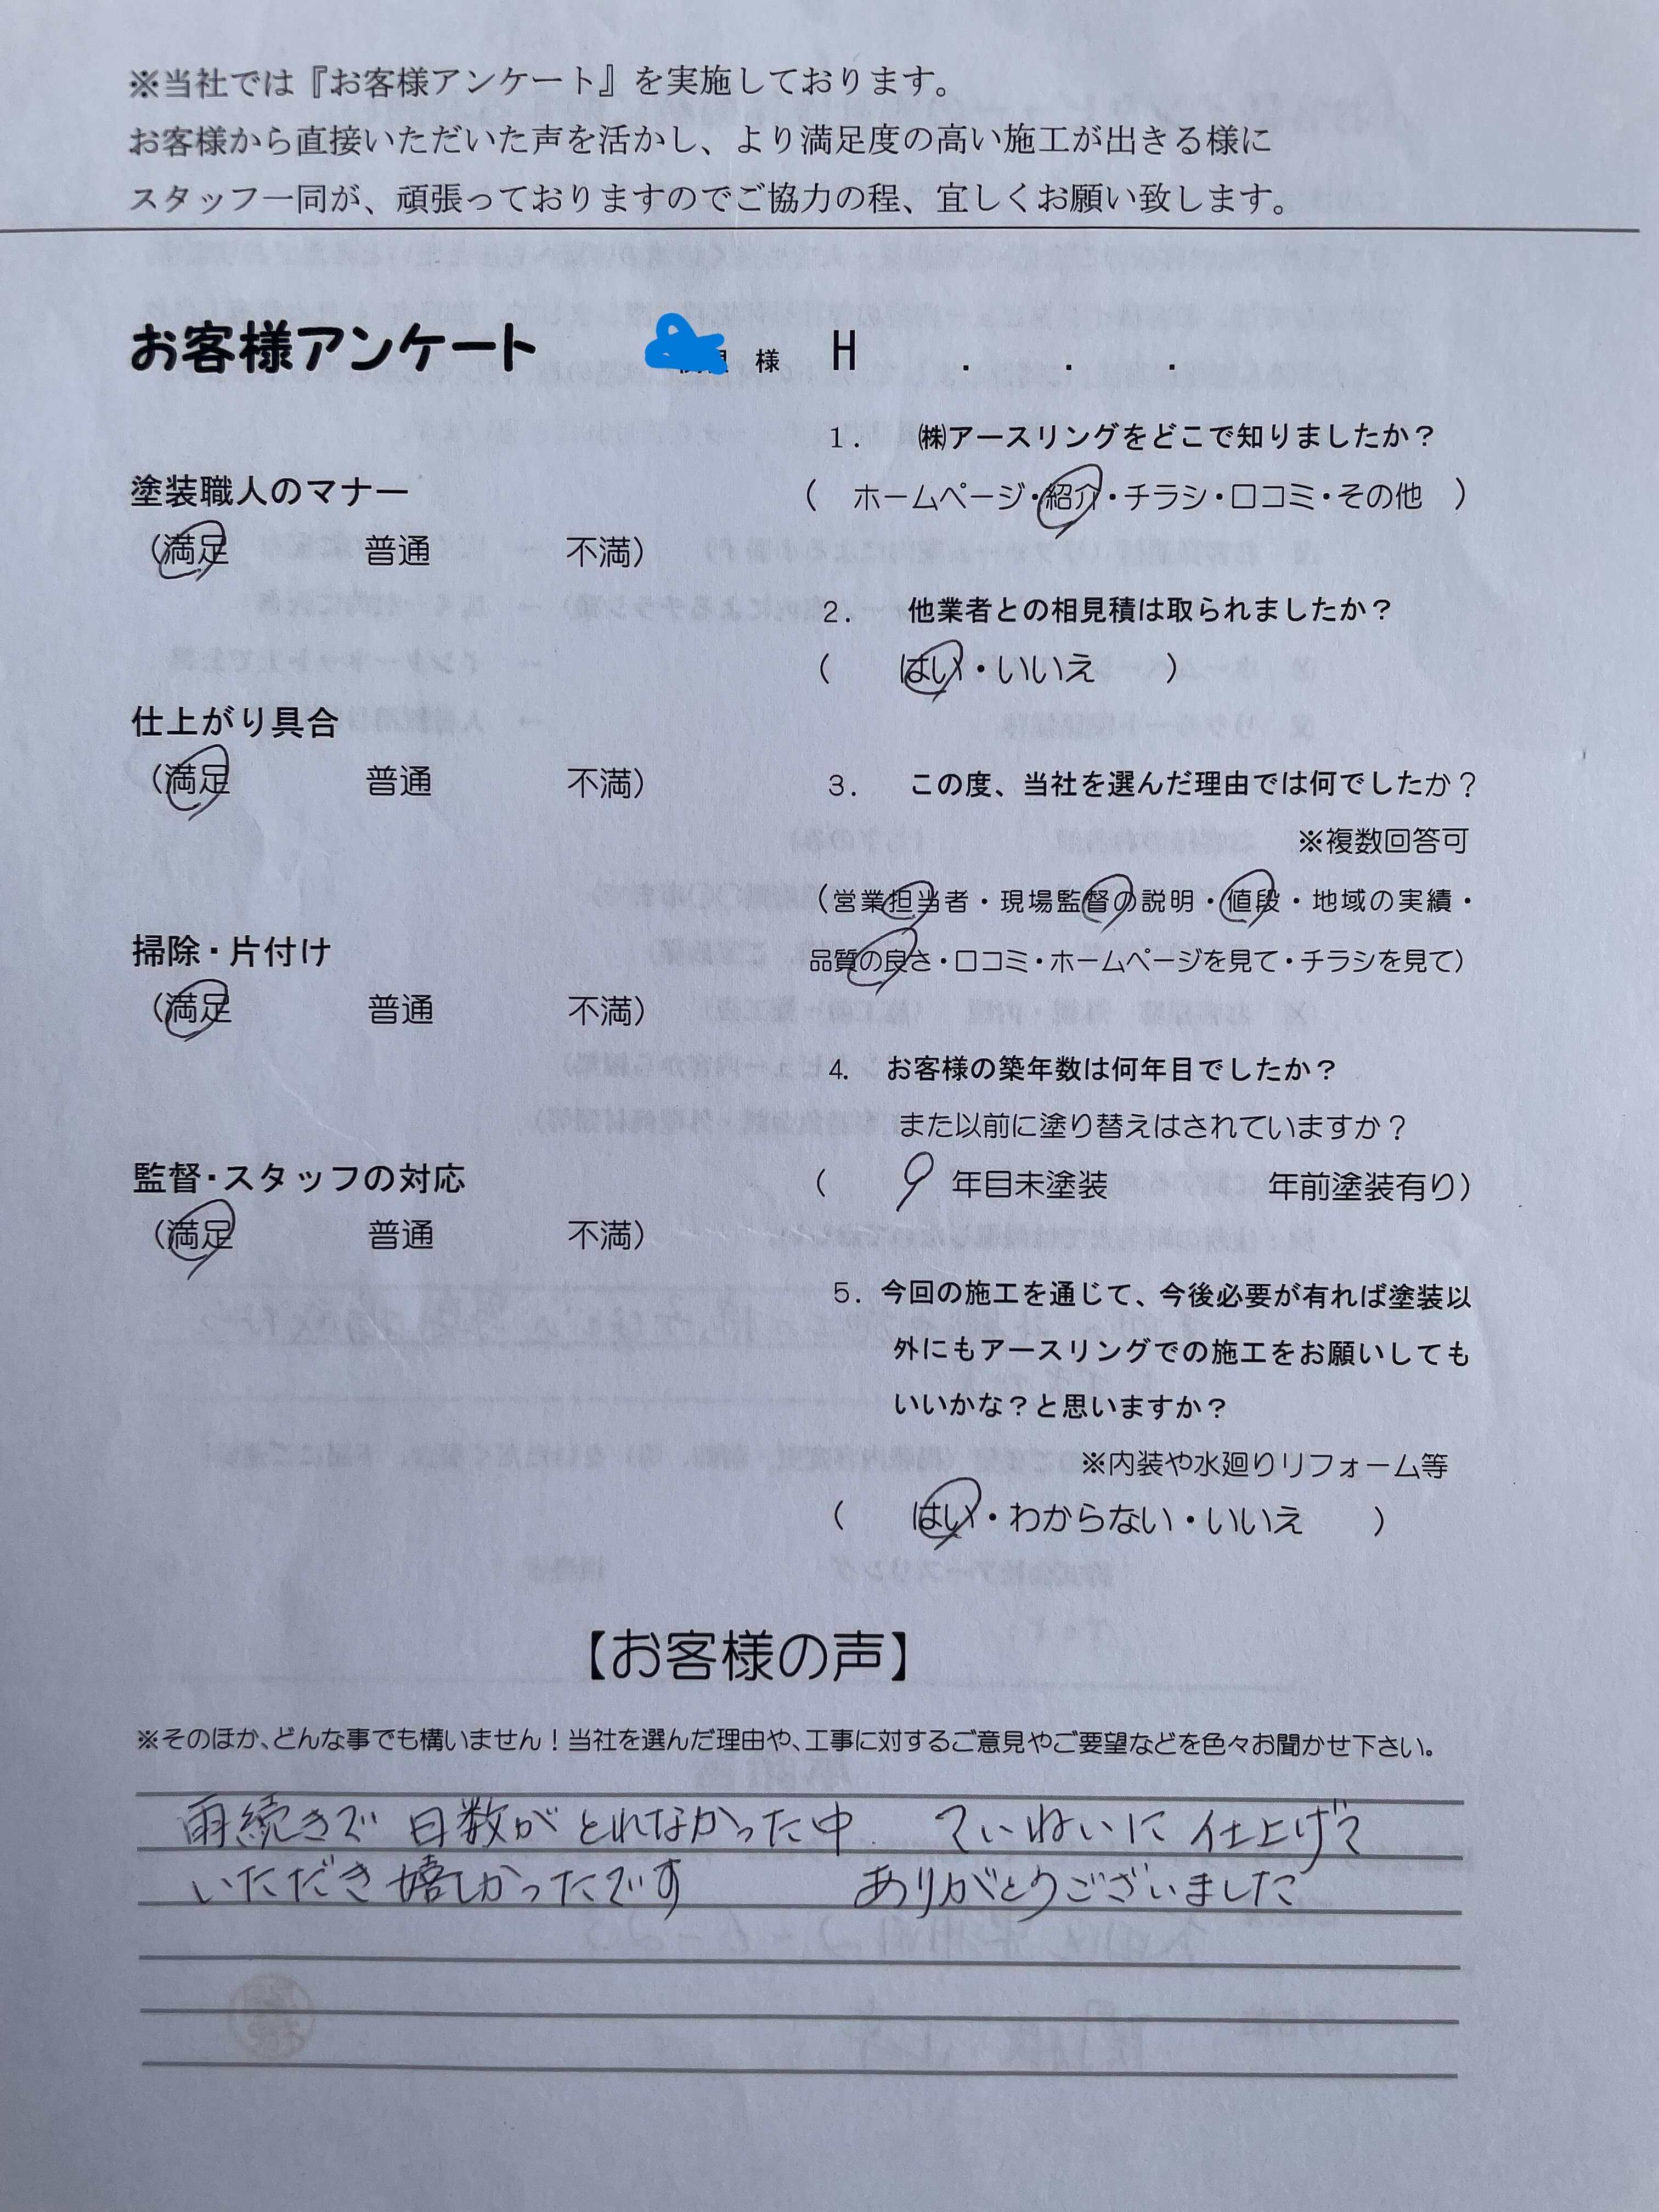 ※当社では『お客様アンケート』を実施しております。
お客様から直接いただいた声を活かし、より満足度の高い施工が出きる様に
スタッフ一同が、頑張っておりますのでご協力の程、宜しくお願い致します。
お客様アンケート 様 H . . .
塗装職人のマナー
(満足 普通 不満)
仕上がり具合
(満足 普通 不満)
掃除・片付け
(満足 普通 不満)
監督・スタッフの対応
(満足 普通 不満)
1. ㈱アースリングをどこで知りましたか?
( ホームページ・紹介・チラシ・口コミ・その他 )
2. 他業者との相見積は取られましたか?
( はい・いいえ )
3. この度、当社を選んだ理由では何でしたか?
※複数回答可
(営業担当者・現場監督の説明・値段・地域の実績・
品質の良さ・口コミ・ホームページを見て・チラシを見て)
4. お客様の築年数は何年目でしたか?
また以前に塗り替えはされていますか?
( 9 年目未塗装 年前塗装有り)
5. 今回の施工を通じて、今後必要が有れば塗装以
外にもアースリングでの施工をお願いしても
いいかな?と思いますか?
※内装や水廻りリフォーム等
( はい・わからない・いいえ )
【お客様の声】
※そのほか、どんな事でも構いません!当社を選んだ理由や、工事に対するご意見やご要望などを色々お聞かせ下さい。
雨続きで 日数が とれなかった中 ていねいに 仕上げて
いただき嬉しかったです ありがとうございました